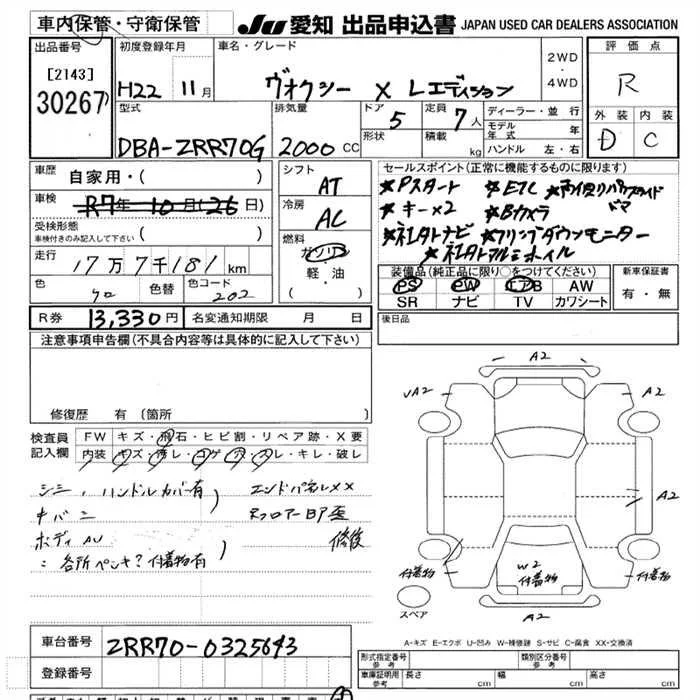 車内保管・守衛保管
JU 愛知 出品申込書 JAPAN USED CAR DEALERS ASSOCIATION
出品番号
[2143]
30267
初度登録年月
H22 11月
車名・グレード
ヴォクシー X Lエディション
2WD
・
4WD
評価点
R
外装 内装
D C
型式
DBA-ZRR70G
排気量
2000 CC
ドア
5
形状
定員
7人
積載
kg
ディーラー・並行
モデル年式 年
ハンドル 左・右
車歴 自家用・( )
車検 R7年10月(26日)
受検形態
車検付きのみ記入して下さい ( )
走行
17万7千181km
色
クロ
色替
色コード
202
シフト
AT
冷房
AC
燃料
ガソリン
・
軽・油
( )
セールスポイント(正常に機能するものに限ります)
★Pスタート ★ETC ★両側パワースライドドア
★キー×2 ★Bカメラ
★社外ナビ ★フリップダウンモニター
★社外アルミホイル
装備品(純正品に限り○をつけてください)
PS PW エアB AW
SR ナビ TV カワシート
新車保証書
有・無
R券 13,330円
名変通知期限 月 日
後日品
注意事項申告欄(不具合内容等は具体的に記入して下さい)
修復歴 有 (箇所 )
検査員
記入欄
FW キズ・飛石・ヒビ割・リペア跡・X要
内装 キズ・汚レ・コゲ・穴・スレ・キレ・破レ
シミ、ハンドルカバー有
キバミ
ボディAU
：各所ペンキ？付着物有
エンドパネルXX
Rフロアー凹歪
修復
A2
UA2
A2
A2
付着物
W2
付着物
付着物
A2
スペア
A-キズ E-エクボ U-凹み W-補修跡 S-サビ C-腐食 XX-交換済
車台番号 ZRR70-0325643
登録番号
形式指定番号
参考
類別区分番号
参考
車庫証明用
参考
長さ cm
幅 cm
高さ cm